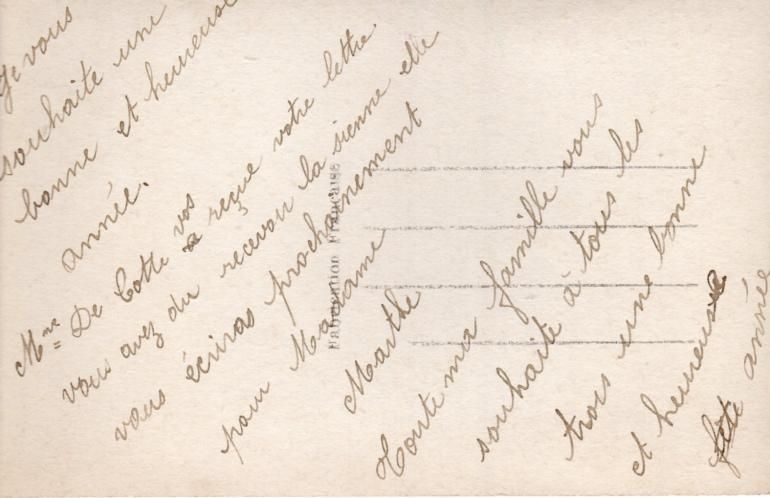 Je vous
souhaite une
bonne et heureuse
année.
Mme De Cotte a reçue votre lettre.
vous avez du recevoir la sienne elle
vous écriras prochainement
pour Madame
Marthe
Toute ma famille vous
souhaite à tous les
trois une bonne
et heureuse
fête année
Fabrication Française